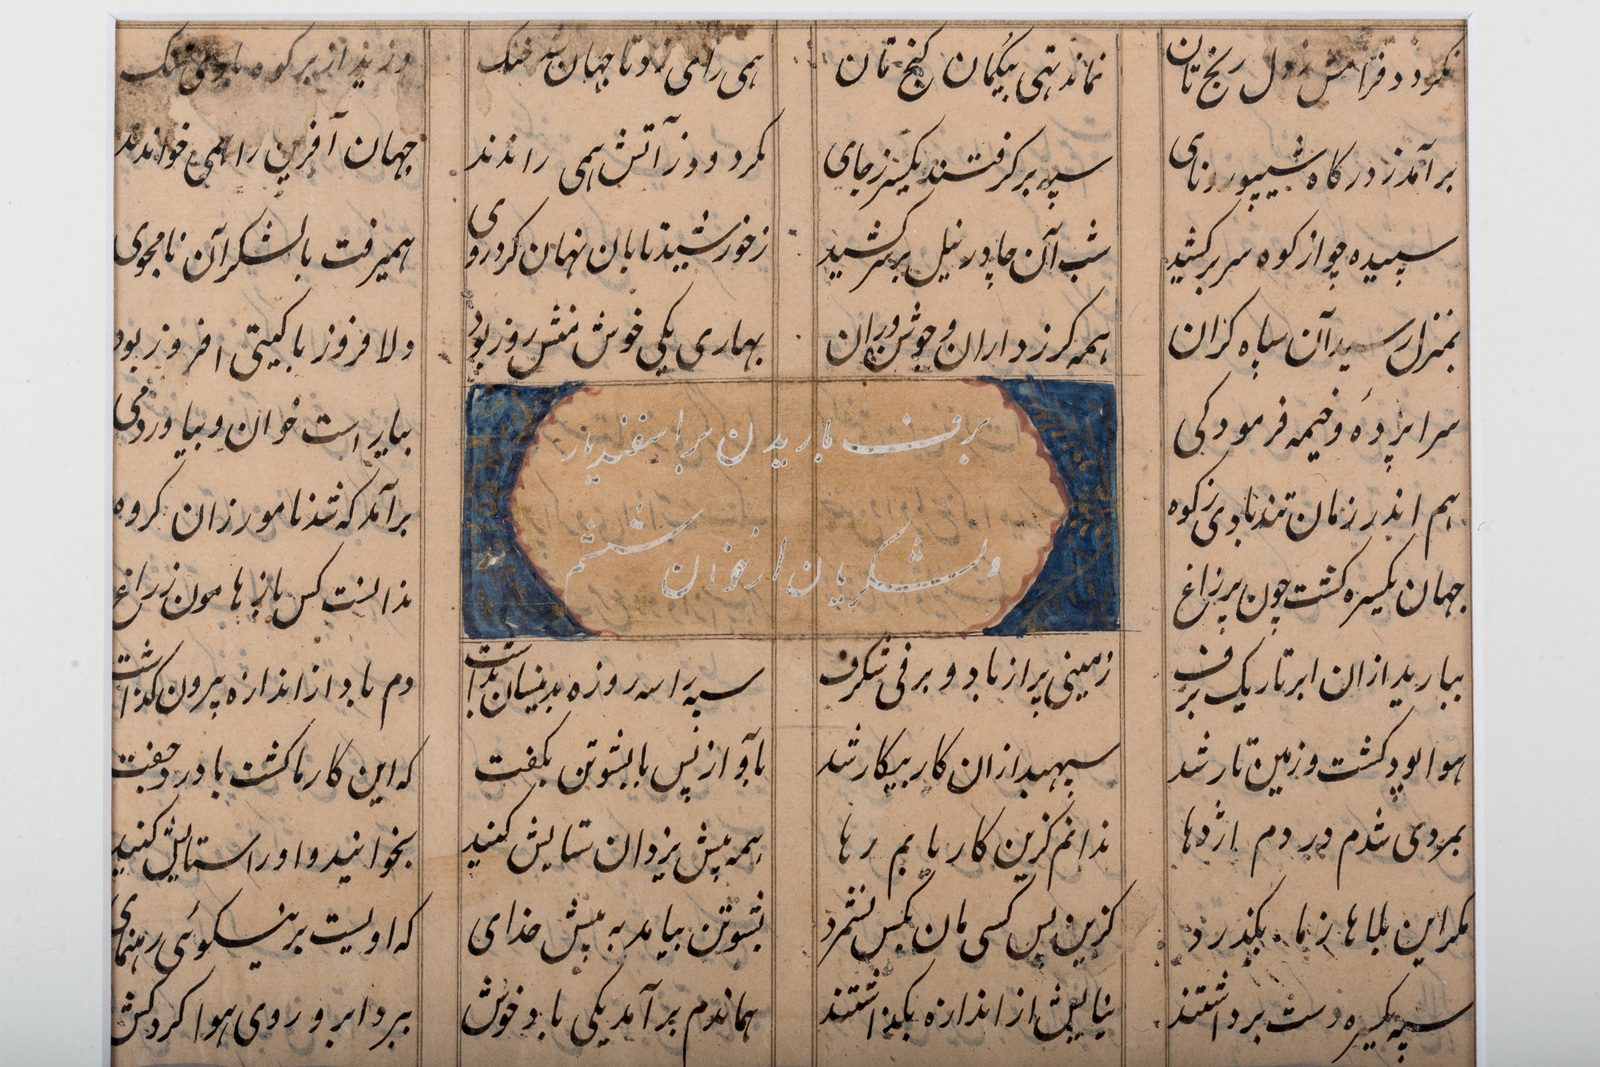 نکردد فرامش ز دل رنج تان
نماند تهی بیکمان کنج تان
همی رای زد تا جهان شد خنک
وزید از بر کوه باد
برآمد ز درکاه شیپور و نای
سپه برکرفتند یکسر ز جای
بکردود ز آتش همی راندند
جهان آفرین را همی خواندند
سپیده چو از کوه سر برکشید
شب آن چادر نیل بر سر کشید
ز خورشید تابان نهان کرد روی
همیرفت با لشکر آن نامجوی
بمنزل رسید آن سپاه کران
همه کرزداران و جوشنوران
بهاری یکی خوش منش روز بود
دلافروز با کیتی افروز بود
سراپرده و خیمه فرمود کی
بیاراست خوان و بیاورد می
برف باریدن بر اسفندیار
ولشکریان از خوان ششم
هم اندر زمان تند بادی ز کوه
برآمد که شد نامور زان کروه
جهان یکسره کشت چون پر زاغ
ندانست کس باز هامون ز راغ
ببارید ازان ابر تاریک برف
زمینی پر از باد و برفی شکرف
سپه را سه روزه بدینسان بداشت
دم باد از اندازه بیرون کذاشت
هوا پود کشت و زمین تار شد
سپهبد ازان کار بیکار شد
بآواز پس با پشوتن بکفت
که این کار ما کشت با درد جفت
بمردی شدم در دم اژدها
ندانم کزین کار یابم رها
همه پیش یزدان ستایش کنید
بخوانید و او را ستایش کنید
مکر این بلاها ز ما بکذرد
کزین پس کسی مان بکس نشمرد
پشوتن بیامد به پیش خدای
که اویست بر نیکوئی رهنمای
سپه یکسره دست برداشتند
نیایش از اندازه بکذاشتند
هماندم برآمد یکی باد خوش
ببرد ابر و روی هوا کرد کش